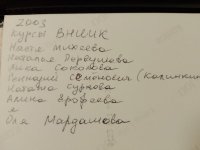 2003
Курсы ВНИИК
Настя Михеева
Наталья Первушова
Лика Соколова
Геннадий Семенович (Калинкин
Наташа Суркова
Алина Ерофеева
я
Оля Мардамова